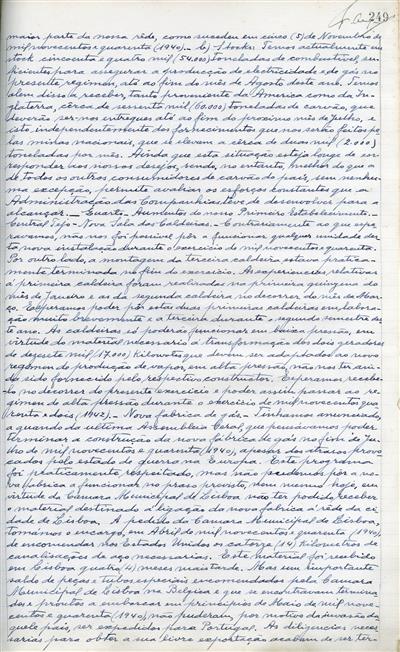 249
maior parte da nossa rêde, como sucedeu em cinco (5) de Novembro de
mil novecentos e quarenta (1940). — b) Stocks: Temos actualmente em
stock cincoenta e quatro mil (54.000) toneladas de combustivel, su-
ficientes para assegurar a producção de electricidade e de gás no
presente regimen, até ao fim do mês de Agosto deste ano. Temos
alem disso a receber, tanto proveniente da America como da In-
glaterra, cêrca de sessenta mil (60.000) toneladas de carvão, que
deverão ser-nos entregues até ao fim do proximo mês de Julho, e
isto, independentemente dos fornecimentos que nos serão feitos pe-
las minas nacionais, que se elevam a cêrca de duas mil (2.000)
toneladas por mês. Ainda que esta situação esteja longe de cor-
responder aos nossos desejos, sendo, no entanto, melhor do que a
de todos os outros consumidores de carvão do país, sem nenhu-
ma excepção, permite avaliar os esforços constantes que a
Administração das Companhias teve de desenvolver para a
alcançar. — Quarto - Aumentos do nosso Primeiro Estabelecimento. —
Central Tejo - Nova Sala das Caldeiras. — Contrariamente ao que espe-
ravamos, não nos foi possivel pôr a funcionar qualquer unidade des-
ta nova instalação durante o exercicio de mil novecentos e quarenta.
Por outro lado, a montagem da terceira caldeira estava pratica-
mente terminada no fim do exercicio. As experiencias relativas
á primeira caldeira foram realizadas na primeira quinzena do
mês de Janeiro e as da segunda caldeira no decorrer do mês de Mar-
ço. Esperamos poder pôr as duas primeiras caldeiras em labora-
ção muito brevemente e a terceira durante o segundo semestre des-
te ano. As caldeiras só poderão funcionar em baixa pressão, em
virtude do material necessario á transformação dos dois geradores
de dezesete mil (17.000) kilowotes que devem ser adaptados ao novo
regimen de producção de vapor, em alta pressão, não nos ter ain-
do sido fornecido pelo respectivo constructor. Esperamos recebe-
lo no decorrer do presente exercicio e poder assim passar ao re-
gimen de alta pressão durante o exercicio de mil novecentos qua-
renta e dois (1942). — Nova fabrica de gás. — Tinhamos anunciado
a quando da ultima Assembleia Geral, que pensávamos poder
terminar a construção da nova fábrica de gás no fim de Ju-
lho de mil novecentos e quarenta (1940), apesar dos atrasos provo-
cados pelo estado de guerra na Europa. Este programa
foi praticamente respeitado, mas não pudemos pôr a no-
va fabrica a funcionar no praso previsto, nem mesmo hoje, em
virtude da Camara Municipal de Lisboa não ter podido receber
o material destinado á ligação da nova fabrica á rêde da ci-
dade de Lisboa. A pedido da Camara Municipal de Lisboa,
tomámos o encargo, em Abril de mil novecentos e quarenta (1940),
de encomendar nos Estados Unidos os catorze (14) kilometros de
canalisações de aço necessarias. Este material foi recebido
em Lisboa quatro (4) meses mais tarde. Mas um importante
saldo de peças e tubos especiais encomendados pela Camara
Municipal de Lisboa na Belgica e que se encontravam termina-
dos e prontos a embarcar em principios de Maio de mil nove-
centos e quarenta (1940), não puderam, por motivo da invasão da-
quele país, ser expedidos para Portugal. As diligencias neces-
sarias para obter a sua livre exportação acabam de ser ter-